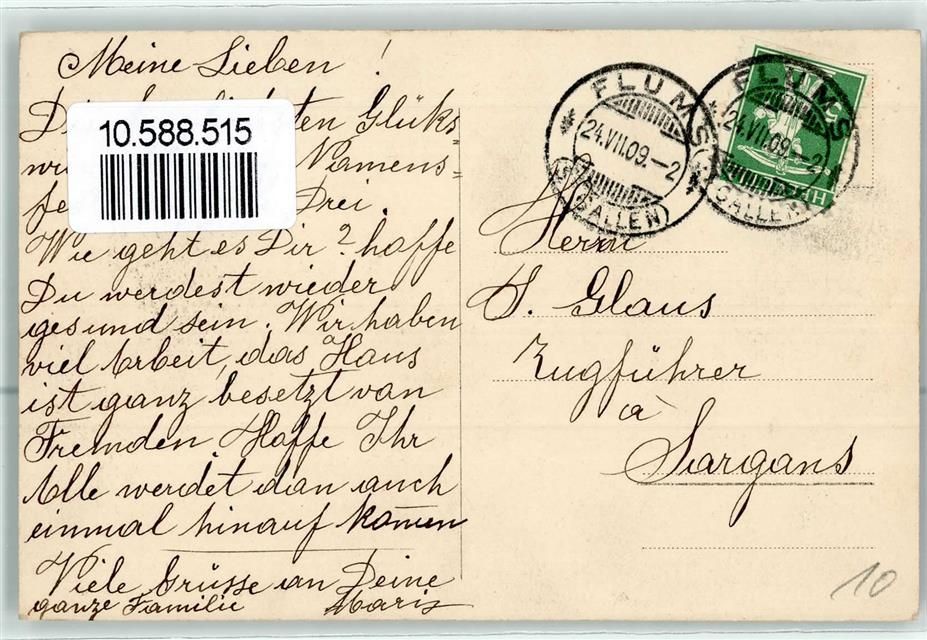 Meine Lieben!
Glüks
Namens=
Drei.
Wie geht es Dir? hoffe
Du werdest wieder
gesund sein. Wir haben
viel Arbeit, das Haus
ist ganz besetzt van
Fremden. Hoffe Ihr
Alle werdet dan auch
einmal hinauf kom̄en
Viele Grüsse an Deine
ganze Familie Marie
10.588.515
FLUMS
24.VII.09.–2
(ST. GALLEN)
FLUMS
24.VII.09.–2
GALLEN)
Herrn
J. Glaus
Zugführer
à
Sargans
10